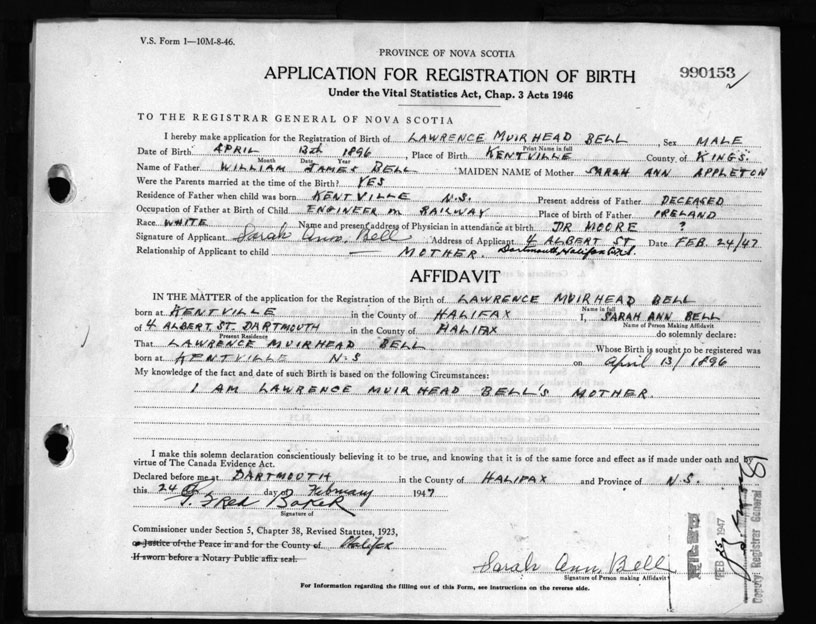 V.S. Form 1—10M-8-46.
PROVINCE OF NOVA SCOTIA
APPLICATION FOR REGISTRATION OF BIRTH
990153
Under the Vital Statistics Act, Chap. 3 Acts 1946
TO THE REGISTRAR GENERAL OF NOVA SCOTIA
I hereby make application for the Registration of Birth of LAWRENCE MUIRHEAD BELL, Sex MALE
Print Name in full
Date of Birth APRIL 13th 1896, Place of Birth KENTVILLE County of KINGS.
Month Date Year
Name of Father WILLIAM JAMES BELL MAIDEN NAME of Mother SARAH ANN APPLETON
Were the Parents married at the time of the Birth? YES
Residence of Father when child was born KENTVILLE N.S. Present address of Father DECEASED
Occupation of Father at Birth of Child ENGINEER on RAILWAY Place of birth of Father IRELAND
Race WHITE Name and present address of Physician in attendance at birth DR MOORE ?
Signature of Applicant Sarah Ann. Bell Address of Applicant 4 ALBERT ST. Date FEB. 24/47
Relationship of Applicant to child MOTHER. Dartmouth, Halifax
AFFIDAVIT
IN THE MATTER of the application for the Registration of Birth of LAWRENCE MUIRHEAD BELL
Name in full
born at KENTVILLE in the County of HALIFAX I, SARAH ANN BELL
Name of Person Making Affidavit
of 4 ALBERT ST. DARTMOUTH in the County of HALIFAX do solemnly declare:
Present Residence
That LAWRENCE MUIRHEAD BELL Whose Birth is sought to be registered was
born at KENTVILLE N.S on April 13/1896
My knowledge of the fact and date of such Birth is based on the following Circumstances:
I AM LAWRENCE MUIRHEAD BELL'S MOTHER.
I make this solemn declaration conscientiously believing it to be true, and knowing that it is of the same force and effect as if made under oath and by
virtue of The Canada Evidence Act.
Declared before me at DARTMOUTH in the County of HALIFAX and Province of N.S.
this 24th day of February 1947
Fred Baker
Signature of
Commissioner under Section 5, Chapter 38, Revised Statutes, 1923,
a Justice of the Peace in and for the County of Halifax
If sworn before a Notary Public affix seal.
Sarah Ann. Bell
Signature of Person making Affidavit
For Information regarding the filling out of this Form, see instructions on the reverse side.
FILED
FEB 25 1947
Deputy Registrar General